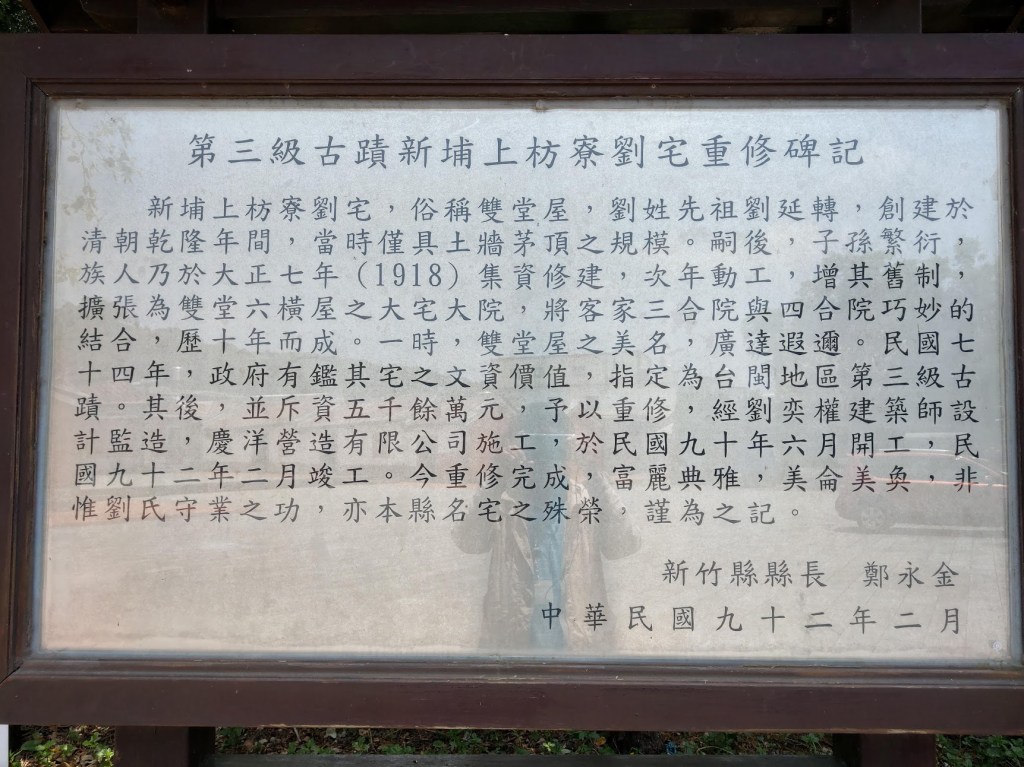 第三級古蹟新埔上枋寮劉宅重修碑記
新埔上枋寮劉宅，俗稱雙堂屋，劉姓先祖劉延轉，創建於
清朝乾隆年間，當時僅具土牆茅頂之規模。嗣後，子孫繁衍，
族人乃於大正七年（1918）集資修建，次年動工，增其舊制，
擴張為雙堂六橫屋之大宅大院，將客家三合院與四合院巧妙的
結合，歷十年而成。一時，雙堂屋之美名，廣達遐邇。民國七
十四年，政府有鑑其宅之文資價值，指定為台閩地區第三級古
蹟。其後，並斥資五千餘萬元，予以重修，經劉奕權建築師設
計監造，慶洋營造有限公司施工，於民國九十年六月開工，民
國九十二年二月竣工。今重修完成，富麗典雅，美侖美奐，非
惟劉氏守業之功，亦本縣名宅之殊榮。謹為之記。
新竹縣縣長　鄭永金
中華民國九十二年二月